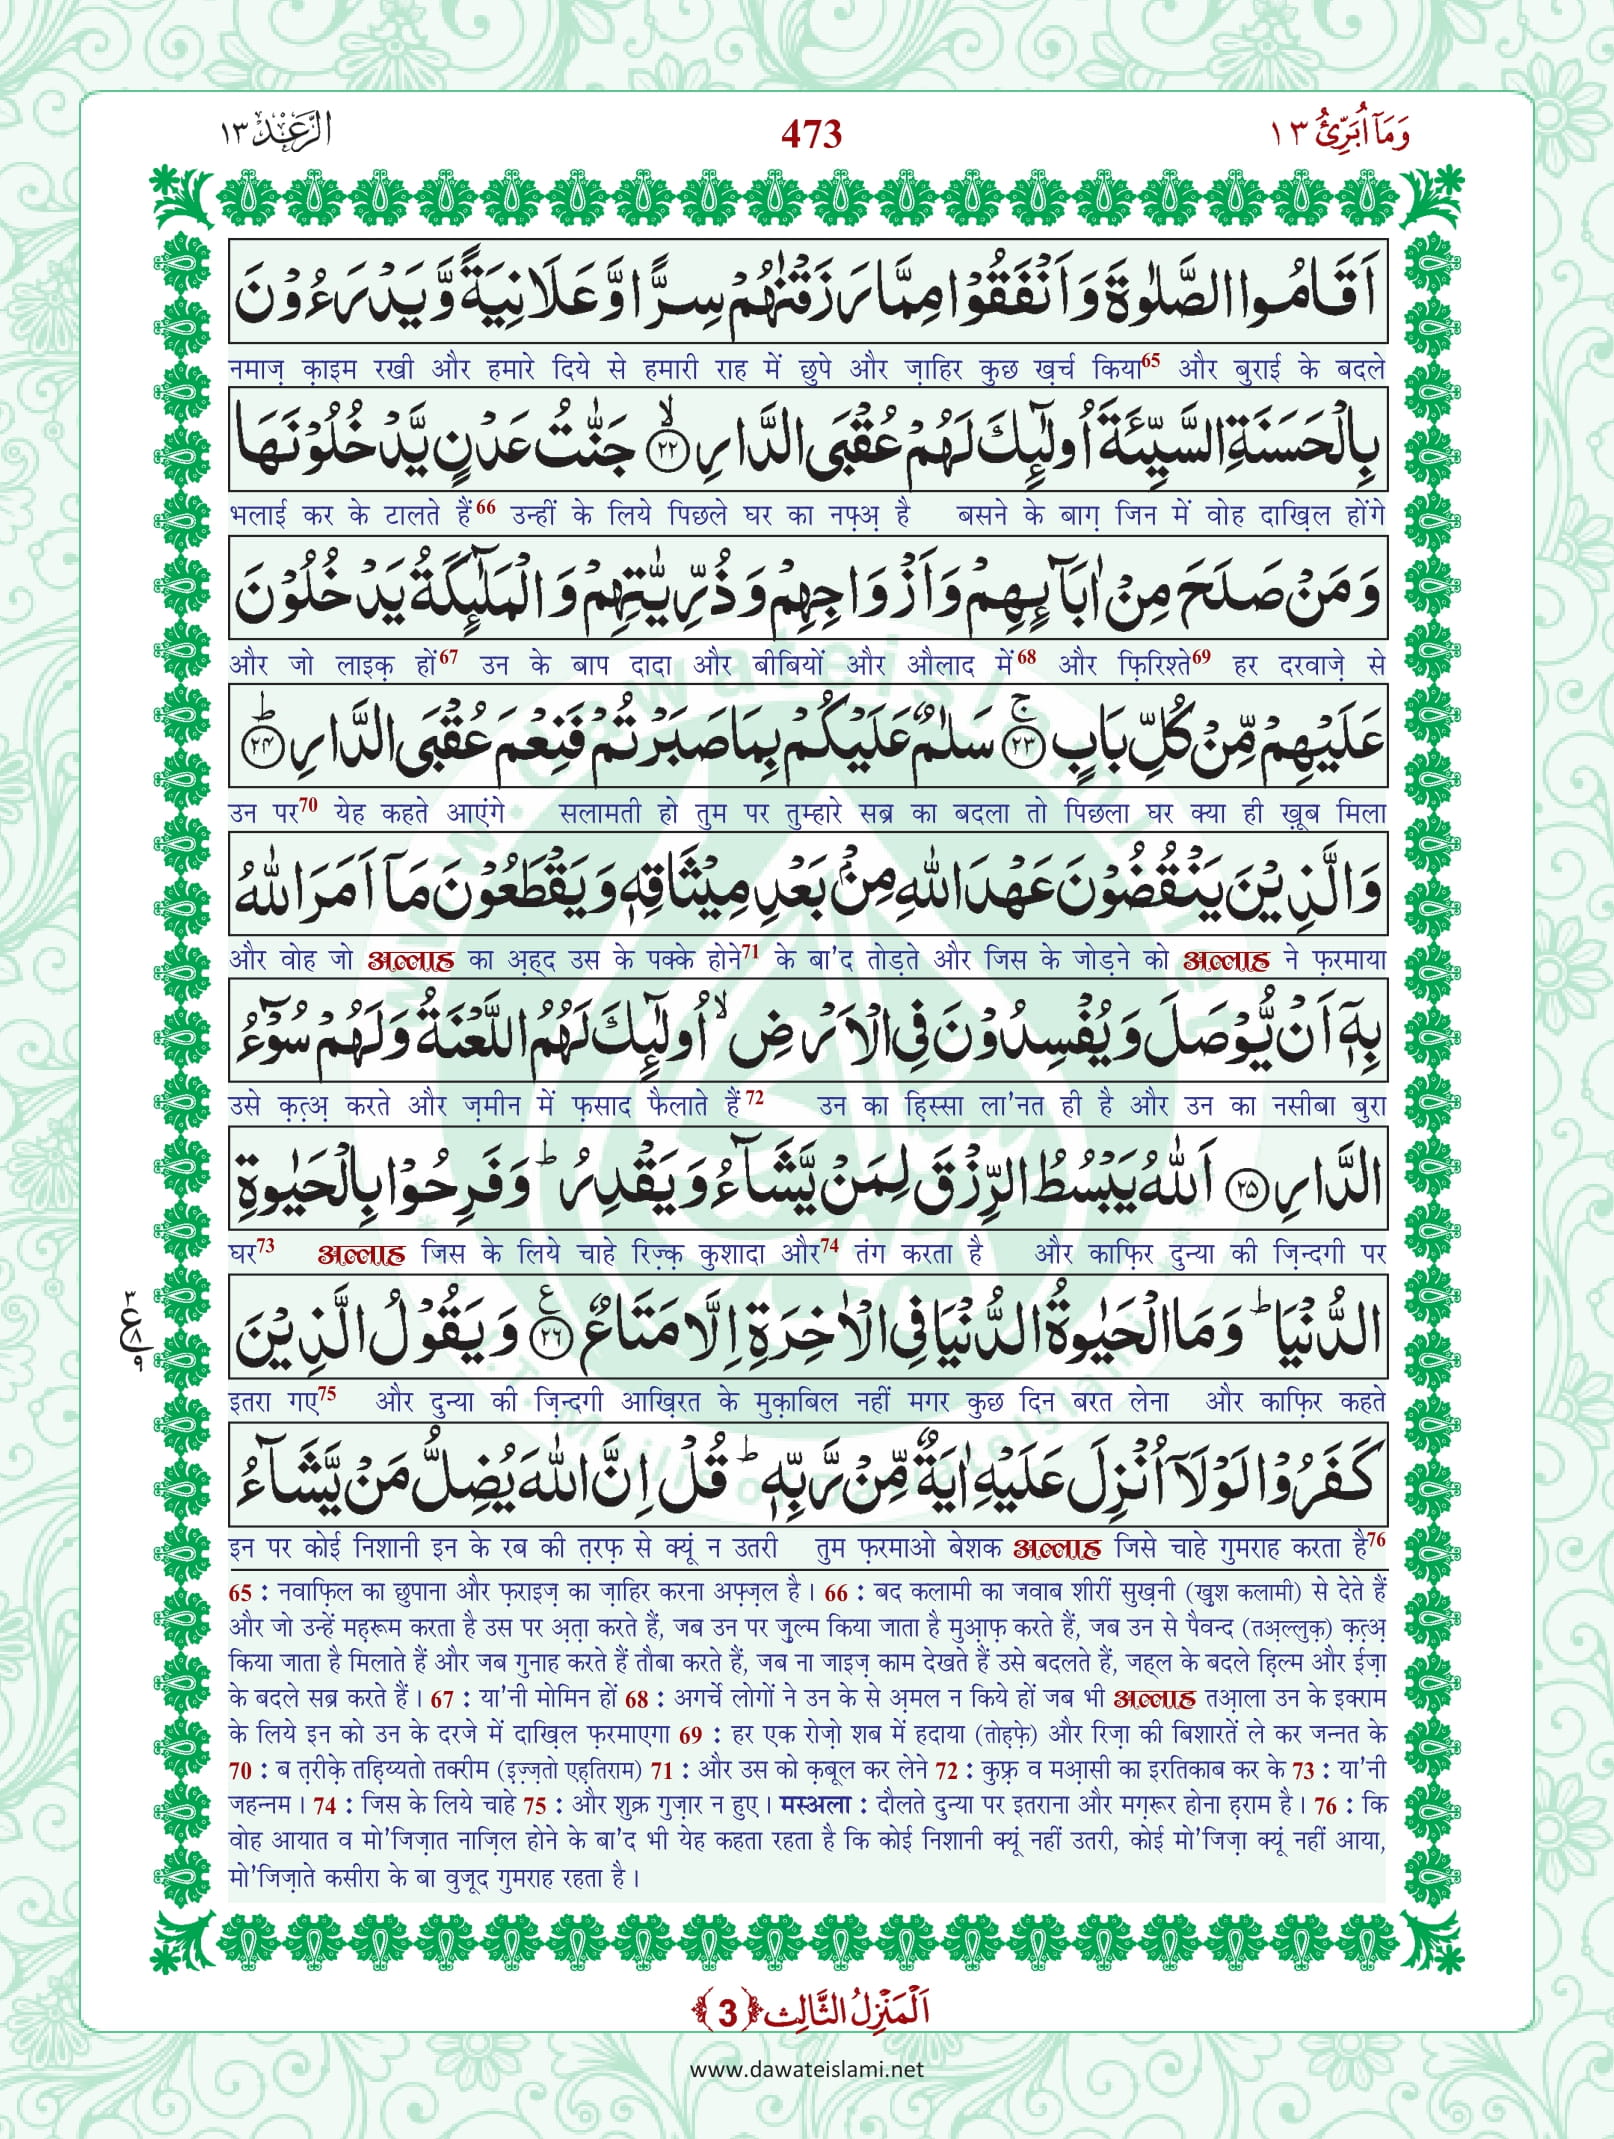 وَمَآ اُبَرِّئُ ١٣
473
الرَّعْد ١٣
اَقَامُوا الصَّلٰوةَ وَاَنْفَقُوْا مِمَّا رَزَقْنٰهُمْ سِرًّا وَّعَلَانِيَةً وَّيَدْرَءُوْنَ
नमाज़ क़ाइम रखी और हमारे दिये से हमारी राह में छुपे और ज़ाहिर कुछ ख़र्च किया65 और बुराई के बदले
بِالْحَسَنَةِ السَّيِّئَةَ اُولٰٓئِكَ لَهُمْ عُقْبَى الدَّارِ ۙ﴿٢٢﴾ جَنّٰتُ عَدْنٍ يَّدْخُلُوْنَهَا
भलाई कर के टालते हैं66 उन्हीं के लिये पिछले घर का नफ़्अ़ है बसने के बाग़ जिन में वोह दाख़िल होंगे
وَمَنْ صَلَحَ مِنْ اٰبَآئِهِمْ وَاَزْوَاجِهِمْ وَذُرِّيّٰتِهِمْ وَالْمَلٰٓئِكَةُ يَدْخُلُوْنَ
और जो लाइक़ हों67 उन के बाप दादा और बीबियों और औलाद में68 और फ़िरिश्ते69 हर दरवाज़े से
عَلَيْهِمْ مِّنْ كُلِّ بَابٍ ۚ﴿٢٣﴾ سَلٰمٌ عَلَيْكُمْ بِمَا صَبَرْتُمْ فَنِعْمَ عُقْبَى الدَّارِ ؕ﴿٢٤﴾
उन पर70 येह कहते आएंगे सलामती हो तुम पर तुम्हारे सब्र का बदला तो पिछला घर क्या ही ख़ूब मिला
وَالَّذِيْنَ يَنْقُضُوْنَ عَهْدَ اللّٰهِ مِنْۢ بَعْدِ مِيْثَاقِهٖ وَيَقْطَعُوْنَ مَآ اَمَرَ اللّٰهُ
और वोह जो अल्लाह का अ़ह्द उस के पक्के होने71 के बा'द तोड़ते और जिस के जोड़ने को अल्लाह ने फ़रमाया
بِهٖٓ اَنْ يُّوْصَلَ وَيُفْسِدُوْنَ فِى الْاَرْضِ ۙ اُولٰٓئِكَ لَهُمُ اللَّعْنَةُ وَلَهُمْ سُوْٓءُ
उसे क़त़्अ़ करते और ज़मीन में फ़साद फैलाते हैं72 उन का हि़स्सा ला'नत ही है और उन का नसीबा बुरा
الدَّارِ ﴿٢٥﴾ اَللّٰهُ يَبْسُطُ الرِّزْقَ لِمَنْ يَّشَآءُ وَيَقْدِرُ ؕ وَفَرِحُوْا بِالْحَيٰوةِ
घर73 अल्लाह जिस के लिये चाहे रिज़्क़ कुशादा और74 तंग करता है और काफ़िर दुन्या की ज़िन्दगी पर
الدُّنْيَا ؕ وَمَا الْحَيٰوةُ الدُّنْيَا فِى الْاٰخِرَةِ اِلَّا مَتَاعٌ ﴿٢٦﴾ۧ وَيَقُوْلُ الَّذِيْنَ
٣ ع ٨ ٩
इतरा गए75 और दुन्या की ज़िन्दगी आख़िरत के मुक़ाबिल नहीं मगर कुछ दिन बरत लेना और काफ़िर कहते
كَفَرُوْا لَوْلَآ اُنْزِلَ عَلَيْهِ اٰيَةٌ مِّنْ رَّبِّهٖ ؕ قُلْ اِنَّ اللّٰهَ يُضِلُّ مَنْ يَّشَآءُ
इन पर कोई निशानी इन के रब की त़रफ़ से क्यूं न उतरी तुम फ़रमाओ बेशक अल्लाह जिसे चाहे गुमराह करता है76
65 : नवाफ़िल का छुपाना और फ़राइज़ का ज़ाहिर करना अफ़्ज़ल है। 66 : बद कलामी का जवाब शीरीं सुख़नी (खुश कलामी) से देते हैं
और जो उन्हें मह़रूम करता है उस पर अ़त़ा करते हैं, जब उन पर ज़ुल्म किया जाता है मुआ़फ़ करते हैं, जब उन से पैवन्द (तअ़ल्लुक़) क़त़्अ़
किया जाता है मिलाते हैं और जब गुनाह करते हैं तौबा करते हैं, जब ना जाइज़ काम देखते हैं उसे बदलते हैं, जह्ल के बदले हि़ल्म और ईज़ा
के बदले सब्र करते हैं। 67 : या'नी मोमिन हों 68 : अगर्चे लोगों ने उन के से अ़मल न किये हों जब भी अल्लाह तआ़ला उन के इक्राम
के लिये इन को उन के दरजे में दाख़िल फ़रमाएगा 69 : हर एक रोज़ो शब में हदाया (तोह़फ़े) और रिज़ा की बिशारतें ले कर जन्नत के
70 : ब त़रीक़े तहि़य्यतो तक्रीम (इ़ज़्ज़तो एह़तिराम) 71 : और उस को क़बूल कर लेने 72 : कुफ़्र व मआ़सी का इरतिकाब कर के 73 : या'नी
जहन्नम। 74 : जिस के लिये चाहे 75 : और शुक्र गुज़ार न हुए। मस्अला : दौलते दुन्या पर इतराना और मग़रूर होना ह़राम है। 76 : कि
वोह आयात व मो'जिज़ात नाज़िल होने के बा'द भी येह कहता रहता है कि कोई निशानी क्यूं नहीं उतरी, कोई मो'जिज़ा क्यूं नहीं आया,
मो'जिज़ाते कसीरा के बा वुजूद गुमराह रहता है।
اَلْمَنْزِلُ الثَّالِث ﴿3﴾
www.dawateislami.net